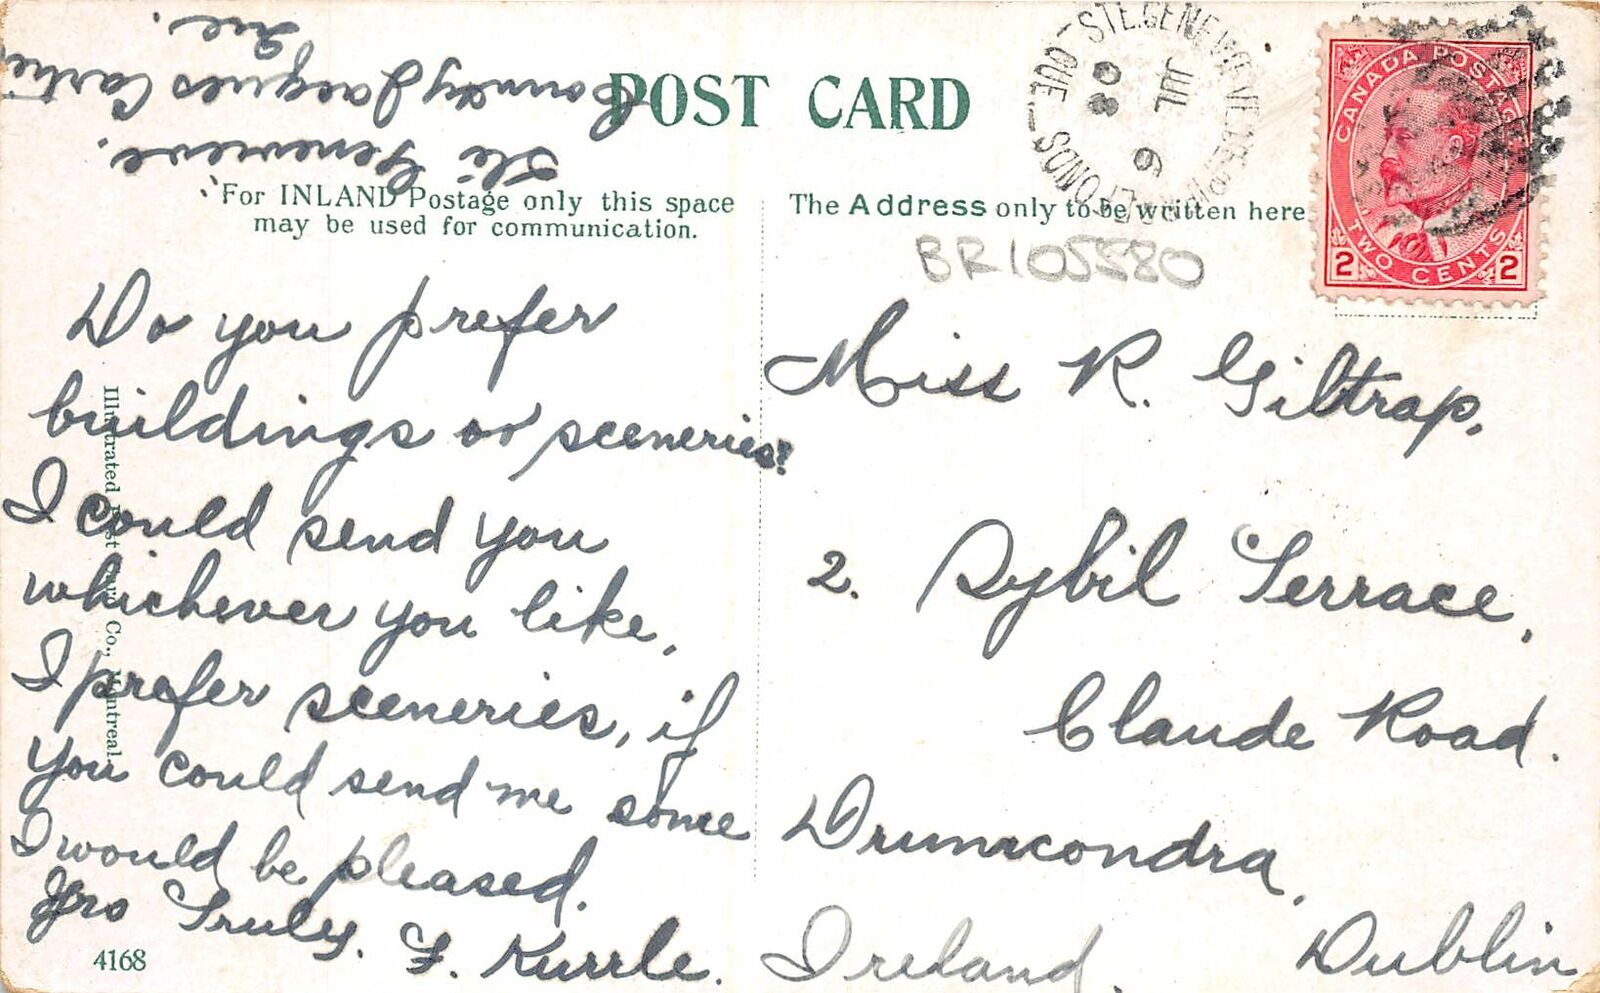 Ste Genevieve.
County Jacques Cartier
Que.
POST CARD
For INLAND Postage only this space
may be used for communication.
The Address only to be written here
STE. GENEVIEVE DE PIERREFONDS QUE
JUL 6
08
CANADA POSTAGE
2 TWO CENTS 2
BR105580
Do you prefer
buildings or sceneries?
I could send you
whichever you like,
I prefer sceneries, if
you could send me some
I would be pleased.
Yrs Truly. F. Kurrle.
Miss R. Giltrap,
2. Sybil Terrace,
Claude Road.
Drumcondra,
Dublin
Ireland.
Illustrated Post Card Co., Montreal.
4168